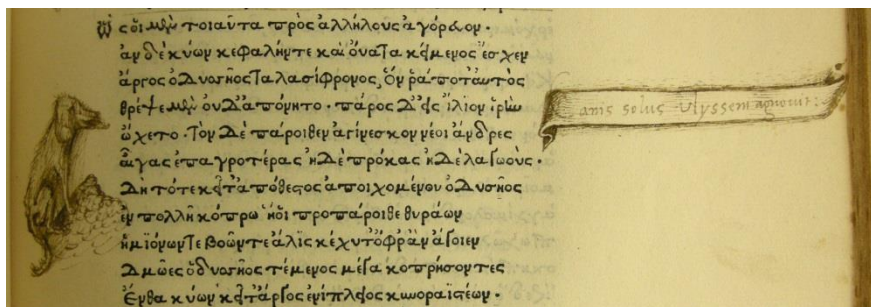 ὣς οἱ μὲν τοιαῦτα πρὸς ἀλλήλους ἀγόρευον·
ἂν δὲ κύων κεφαλήν τε καὶ οὔατα κείμενος ἔσχεν
ἄργος ὀδυσῆος ταλασίφρονος, ὅν ῥά ποτ' αὐτὸς
θρέψε μὲν οὐδ' ἀπόνητο· πάρος δ' εἰς ἴλιον ἱρὴν
ᾤχετο· τὸν δὲ πάροιθεν ἀγίνεσκον νέοι ἄνδρες
αἶγας ἐπ' ἀγροτέρας ἠδὲ πρόκας ἠδὲ λαγωούς·
δὴ τότε κεῖτ' ἀπόθεστος ἀποιχομένου ὀδυσῆος
ἐν πολλῇ κόπρῳ ἥ οἱ προπάροιθε θυράων
ἡμιόνων τε βοῶν τε ἅλις κέχυτ' ὄφρ' ἂν ἄγοιεν
δμῶες ὀδυσσῆος τέμενος μέγα κοπρήσοντες
ἔνθα κύων κεῖτ' ἄργος ἐνίπλειος κυνοραιστέων·
anis solus Ulyssem agnovit: